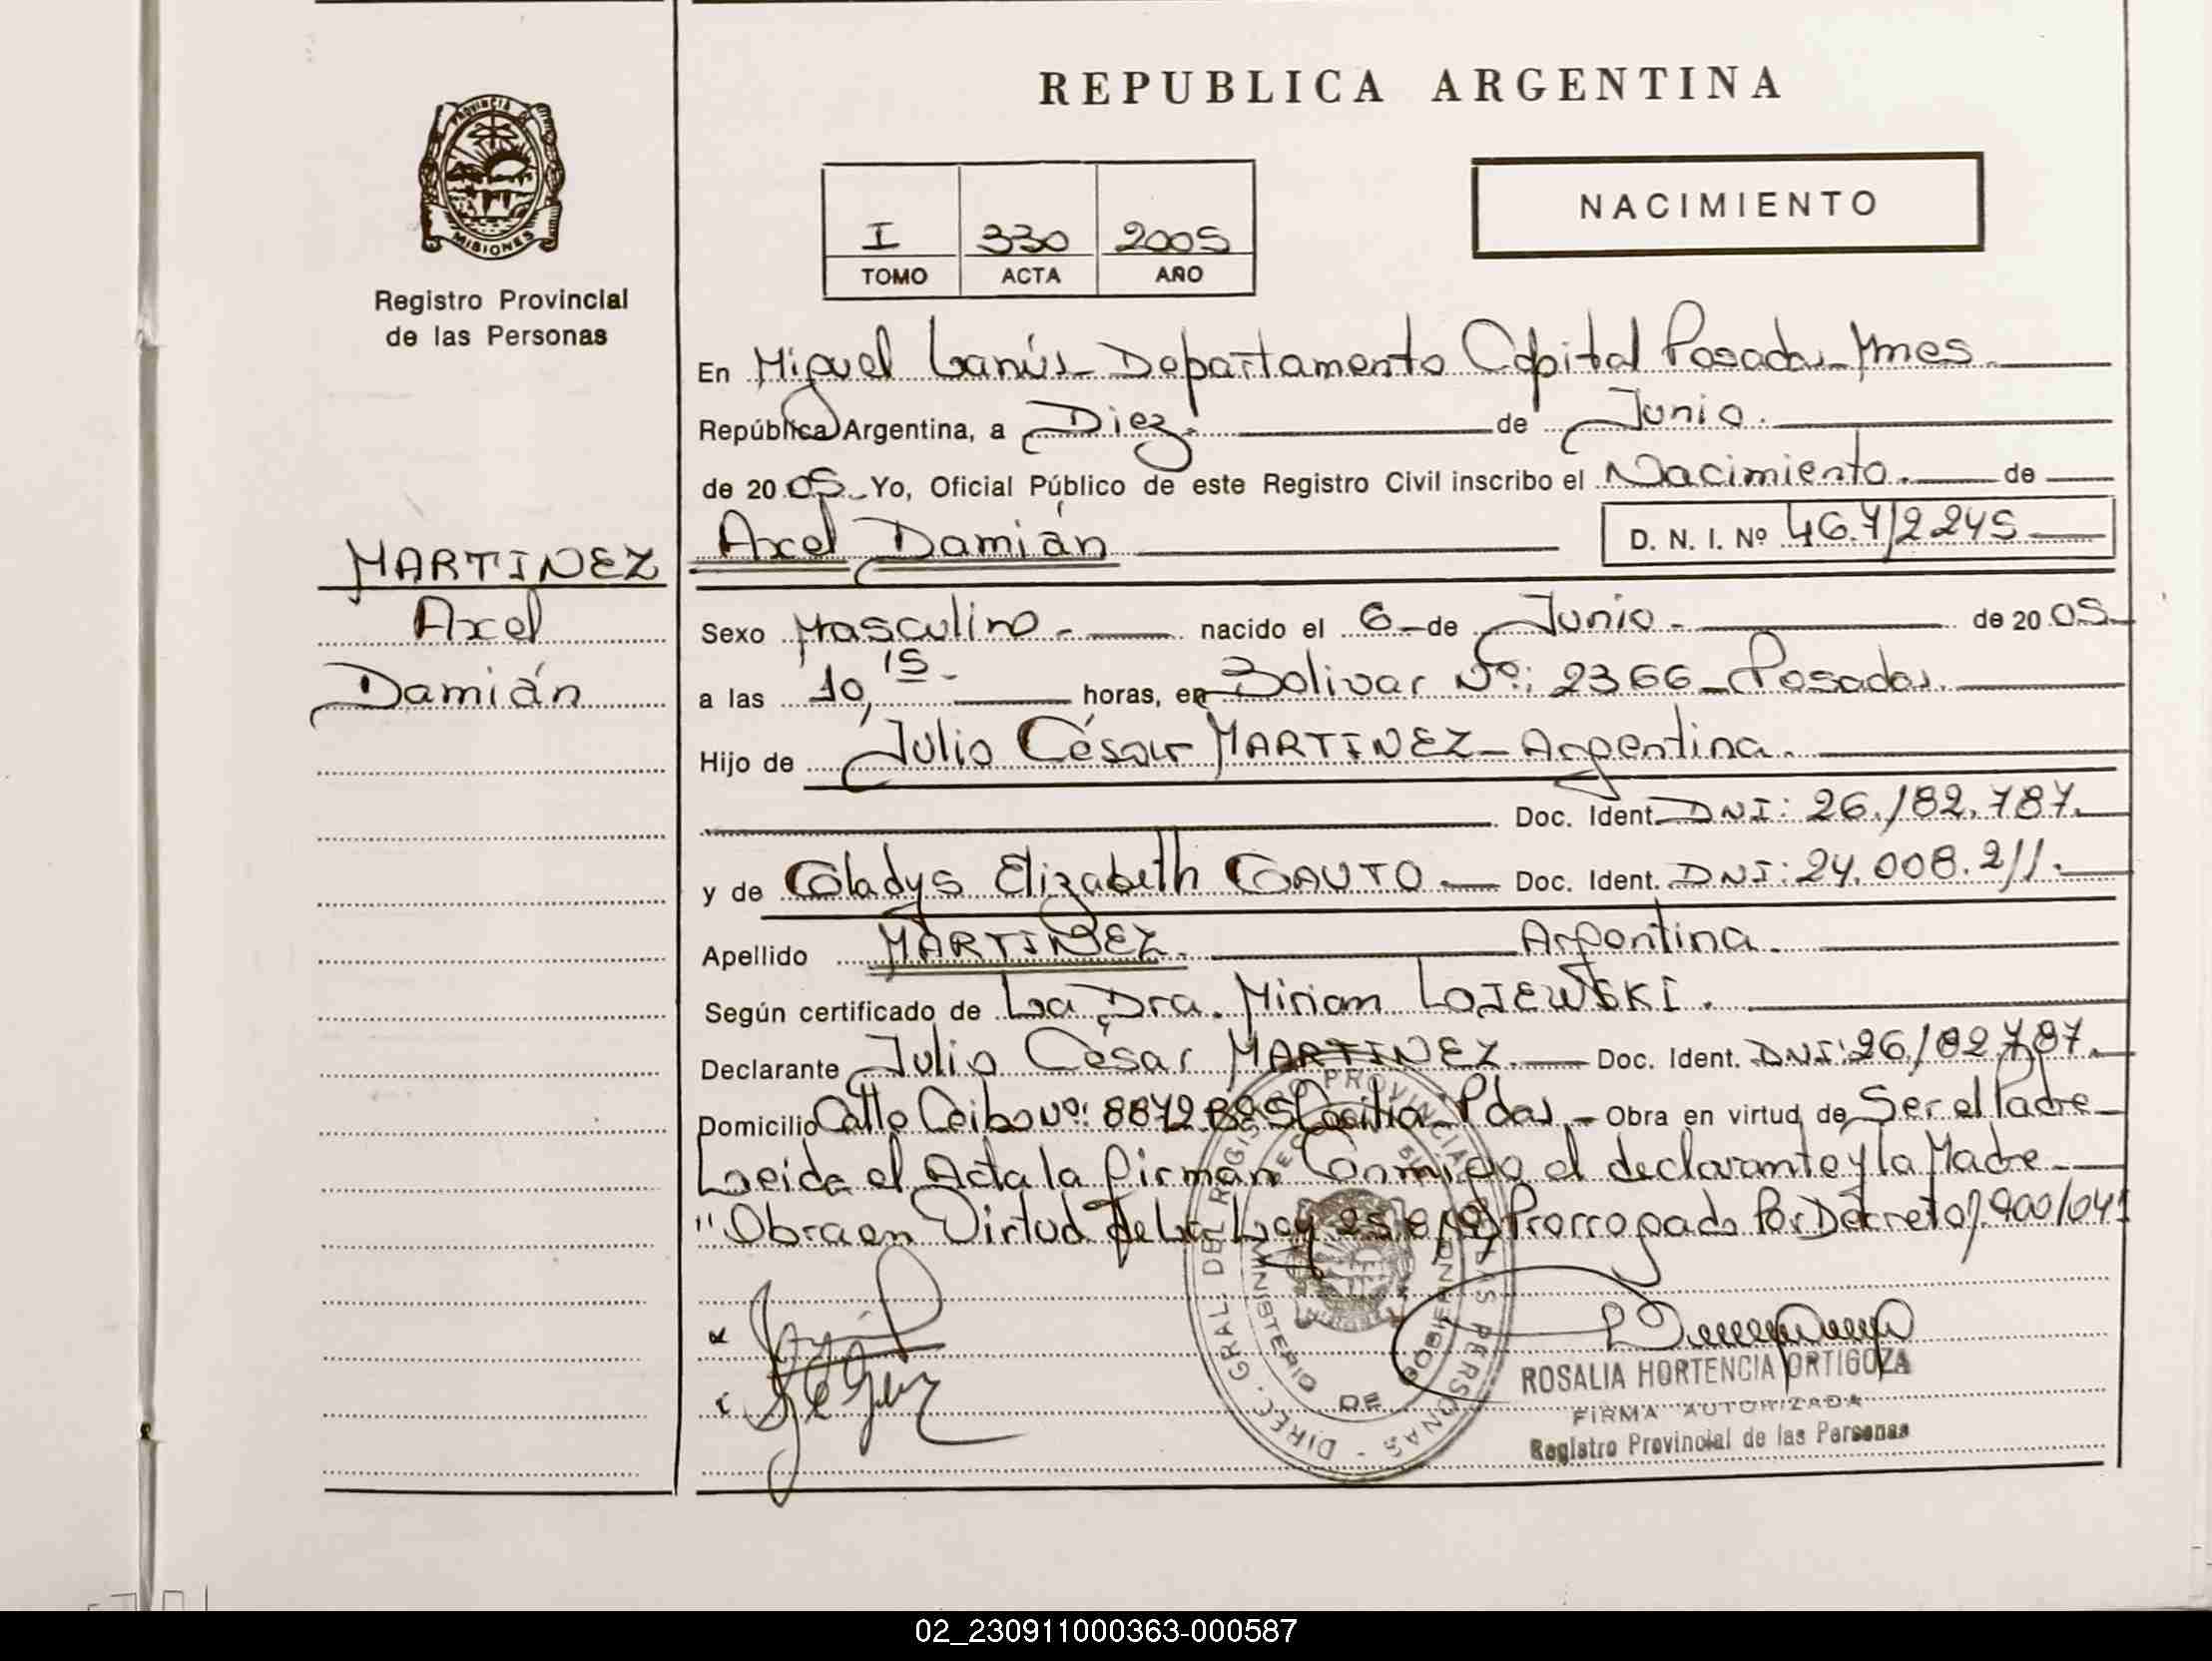 REPUBLICA ARGENTINA
PROVINCIA DE
MISIONES
Registro Provincial
de las Personas
I 330 2005
TOMO ACTA AÑO
NACIMIENTO
En Miguel Lanús - Departamento Capital Posadas - Mnes.
República Argentina, a Diez. de Junio.
de 20 05 - Yo, Oficial Público de este Registro Civil inscribo el Nacimiento. de
MARTINEZ
Axel
Damián
Axel Damián D. N. I. Nº 46.412245
Sexo Masculino - nacido el 6 - de Junio - de 20 05
a las 10,15 - horas, en Bolivar Nº: 2366 - Posadas.
Hijo de Julio César MARTINEZ - Argentina.
Doc. Ident. DNI: 26.182.787.
y de Gladys Elizabeth GAUTO - Doc. Ident. DNI: 24.008.211.
Apellido MARTINEZ. Argentina.
Según certificado de La Dra. Miriam LOJEWSKI.
Declarante Julio César MARTINEZ. Doc. Ident. DNI: 26.182.787.
Domicilio Calle Ceibo Nº: 8872 Bº S Cecilia - Pdas. - Obra en virtud de Ser el Padre
Leida el Acta la firman Conmigo el declarante y la Madre
"Obra en Virtud de La Ley 25.819 Prorrogado Por Decreto 1.900/04"
DIREC. GRAL. DEL REGISTRO PROVINCIAL DE LAS PERSONAS
MINISTERIO DE GOBIERNO
ROSALIA HORTENCIA ORTIGOZA
FIRMA AUTORIZADA
Registro Provincial de las Personas
02_230911000363-000587